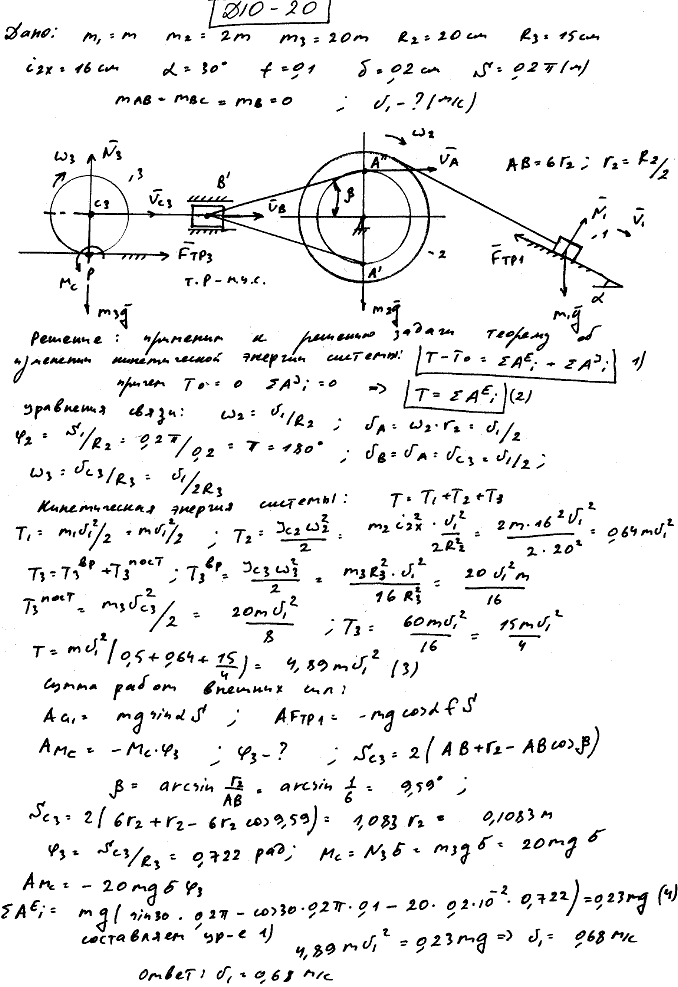 Д10-20
Дано: m₁ = m m₂ = 2m m₃ = 20m R₂ = 20 см R₃ = 15 см
i₂ₓ = 16 см α = 30° f = 0,1 δ = 0,2 см S = 0,2π (м)
mAB = mBC = mB = 0 ; v₁ - ? (м/с)
ω₃ N̄₃ 3 C₃ V̄C3 B' V̄B β A'' V̄A ω₂ AB = 6r₂ ; r₂ = R₂/2
A' A 2 N̄₁ 1 V̄₁ F̄ТР1 α m₁ḡ
Mc P F̄ТР3 т. P - м.ц.с.
m₃ḡ m₂ḡ
Решение: применим к решению задачи теорему об
изменении кинетической энергии системы: T - T₀ = ΣAᴱᵢ + ΣAᴶᵢ 1)
причем T₀ = 0 ΣAᴶᵢ = 0 => T = ΣAᴱᵢ (2)
уравнения связи: ω₂ = v₁/R₂ ; vA = ω₂·r₂ = v₁/2
φ₂ = S₁/R₂ = 0,2π/0,2 = π = 180° ; vB = vA = vC3 = v₁/2 ;
ω₃ = vC3/R₃ = v₁/2R₃
Кинетическая энергия системы: T = T₁ + T₂ + T₃
T₁ = m₁v₁²/2 = mv₁²/2 ; T₂ = JC2 ω₂²/2 = m₂ i₂ₓ² · v₁²/2R₂² = 2m·16² v₁²/2·20² = 0,64 mv₁²
T₃ = T₃ᵇᵖ + T₃ᵖᵒᶜᵗ ; T₃ᵇᵖ = JC3 ω₃²/2 = m₃R₃²·v₁²/16 R₃² = 20 v₁² m/16
T₃ᵖᵒᶜᵗ = m₃vC3²/2 = 20mv₁²/8 ; T₃ = 60mv₁²/16 = 15mv₁²/4
T = mv₁² (0,5 + 0,64 + 15/4) = 4,89 mv₁² (3)
Сумма работ внешних сил:
AG₁ = mg sinα S ; AFТР1 = -mg cosα f S
AMc = -Mc·φ₃ ; φ₃ - ? ; SC3 = 2(AB + r₂ - AB cosβ)
β = arcsin r₂/AB = arcsin 1/6 = 9,59° ;
SC3 = 2(6r₂ + r₂ - 6r₂ cos 9,59) = 1,083 r₂ = 0,1083 м
φ₃ = SC3/R₃ = 0,722 рад; Mc = N₃δ = m₃gδ = 20mgδ
AMc = -20mgδφ₃
ΣAᴱᵢ = mg(sin30 · 0,2π - cos30·0,2π·0,1 - 20·0,2·10⁻²·0,722) = 0,23mg (4)
составляем ур-е 1) 4,89 mv₁² = 0,23mg => v₁ = 0,68 м/с
Ответ: v₁ = 0,68 м/с